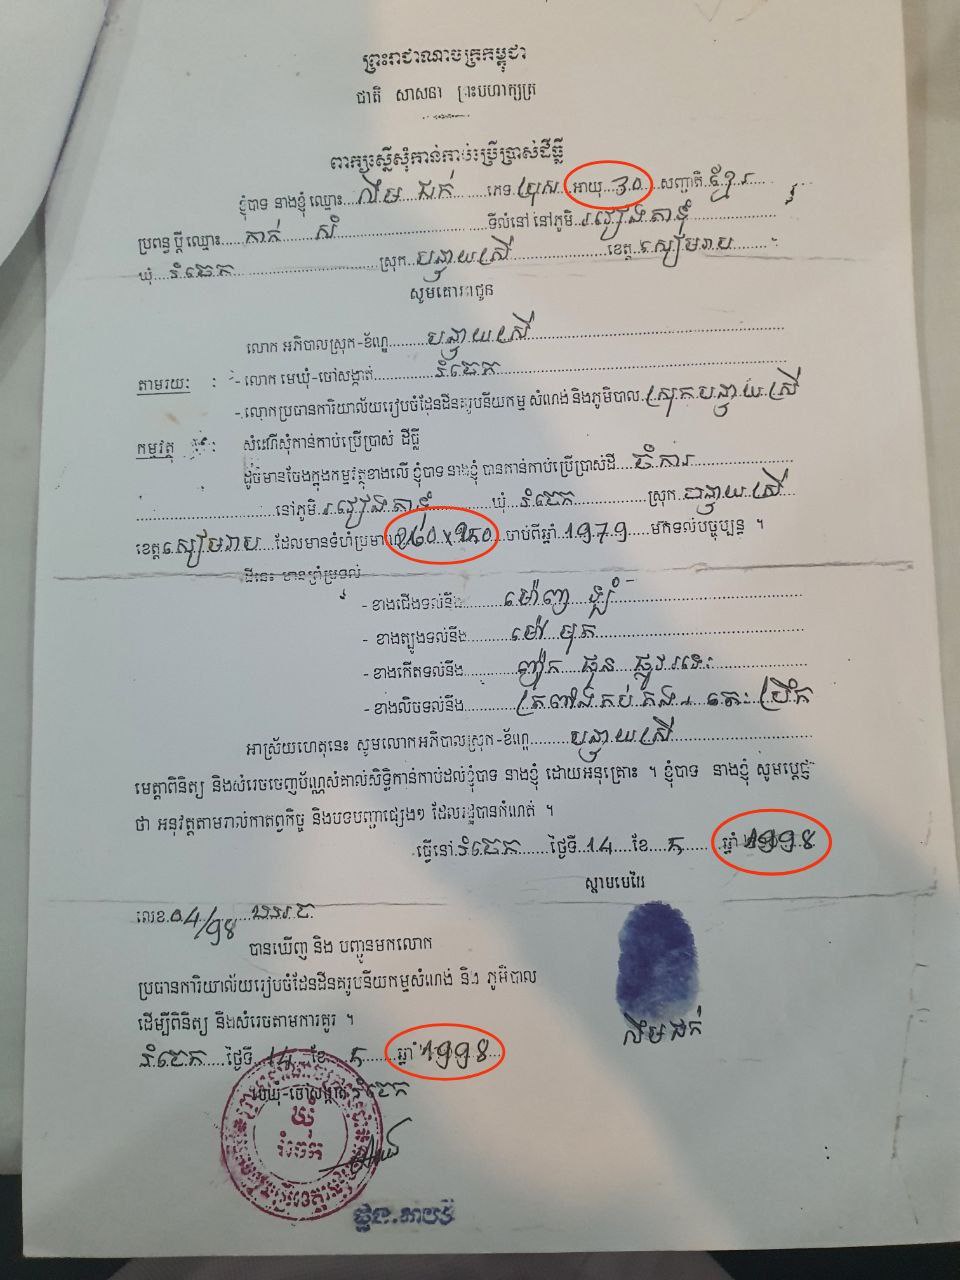 ព្រះរាជាណាចក្រកម្ពុជា
ជាតិ សាសនា ព្រះមហាក្សត្រ
ពាក្យស្នើសុំកាន់កាប់ប្រើប្រាស់ដីធ្លី
ខ្ញុំបាទ នាងខ្ញុំ ឈ្មោះ លឹម ជក់ ភេទ ប្រុស អាយុ 30 សញ្ជាតិ ខ្មែរ
ប្រពន្ធ ប្តី ឈ្មោះ កាក់ សំ ទីលំនៅ នៅភូមិ
ឃុំ រំចេក ស្រុក បន្ទាយស្រី ខេត្ត សៀមរាប
សូមគោរពជូន
លោក អភិបាលស្រុក-ខ័ណ្ឌ បន្ទាយស្រី
តាមរយៈ : - លោក មេឃុំ-ចៅសង្កាត់ រំចេក
- លោកប្រធានការិយាល័យរៀបចំដែនដីនគរូបនីយកម្ម សំណង់ និងភូមិបាល ស្រុក បន្ទាយស្រី
កម្មវត្ថុ : សំណើសុំកាន់កាប់ប្រើប្រាស់ ដីធ្លី
ដូចមានចែងក្នុងកម្មវត្ថុខាងលើ ខ្ញុំបាទ នាងខ្ញុំ បានកាន់កាប់ប្រើប្រាស់ដី ចំការ
នៅភូមិ ឃុំ រំចេក ស្រុក បន្ទាយស្រី
ខេត្ត សៀមរាប ដែលមានទំហំប្រមាណ ចាប់ពីឆ្នាំ 1979 មកទល់បច្ចុប្បន្ន ។
ដីនេះ មានព្រំប្រទល់
- ខាងជើងទល់នឹង ម៉ោញ
- ខាងត្បូងទល់នឹង ម៉ៅ មុត
- ខាងកើតទល់នឹង ផុន ផ្លូវរទេះ
- ខាងលិចទល់នឹង ត្រពាំង
អាស្រ័យហេតុនេះ សូមលោកអភិបាលស្រុក-ខ័ណ្ឌ បន្ទាយស្រី
មេត្តាពិនិត្យ និងសំរេចចេញប័ណ្ណសំគាល់សិទ្ធិកាន់កាប់ដល់ខ្ញុំបាទ នាងខ្ញុំ ដោយអនុគ្រោះ ។ ខ្ញុំបាទ នាងខ្ញុំ សូមប្តេជ្ញា
ថា អនុវត្តតាមរាល់កាតព្វកិច្ច និងបទបញ្ជាផ្សេងៗ ដែលរដ្ឋបានកំណត់ ។
ធ្វើនៅ រំចេក ថ្ងៃទី 14 ខែ ៤ ឆ្នាំ 199៨
ស្តាមមេដៃ
លេខ 04/9៨
បានឃើញ និង បញ្ជូនមកលោក
ប្រធានការិយាល័យរៀបចំដែនដីនគរូបនីយកម្មសំណង់ និង ភូមិបាល
ដើម្បីពិនិត្យ និងសំរេចតាមការគួរ ។
លឹម ជក់
រំចេក ថ្ងៃទី 14 ខែ ៤ ឆ្នាំ 199៨
មេឃុំ-ចៅសង្កាត់ រំចេក
ឃុំ
រំចេក